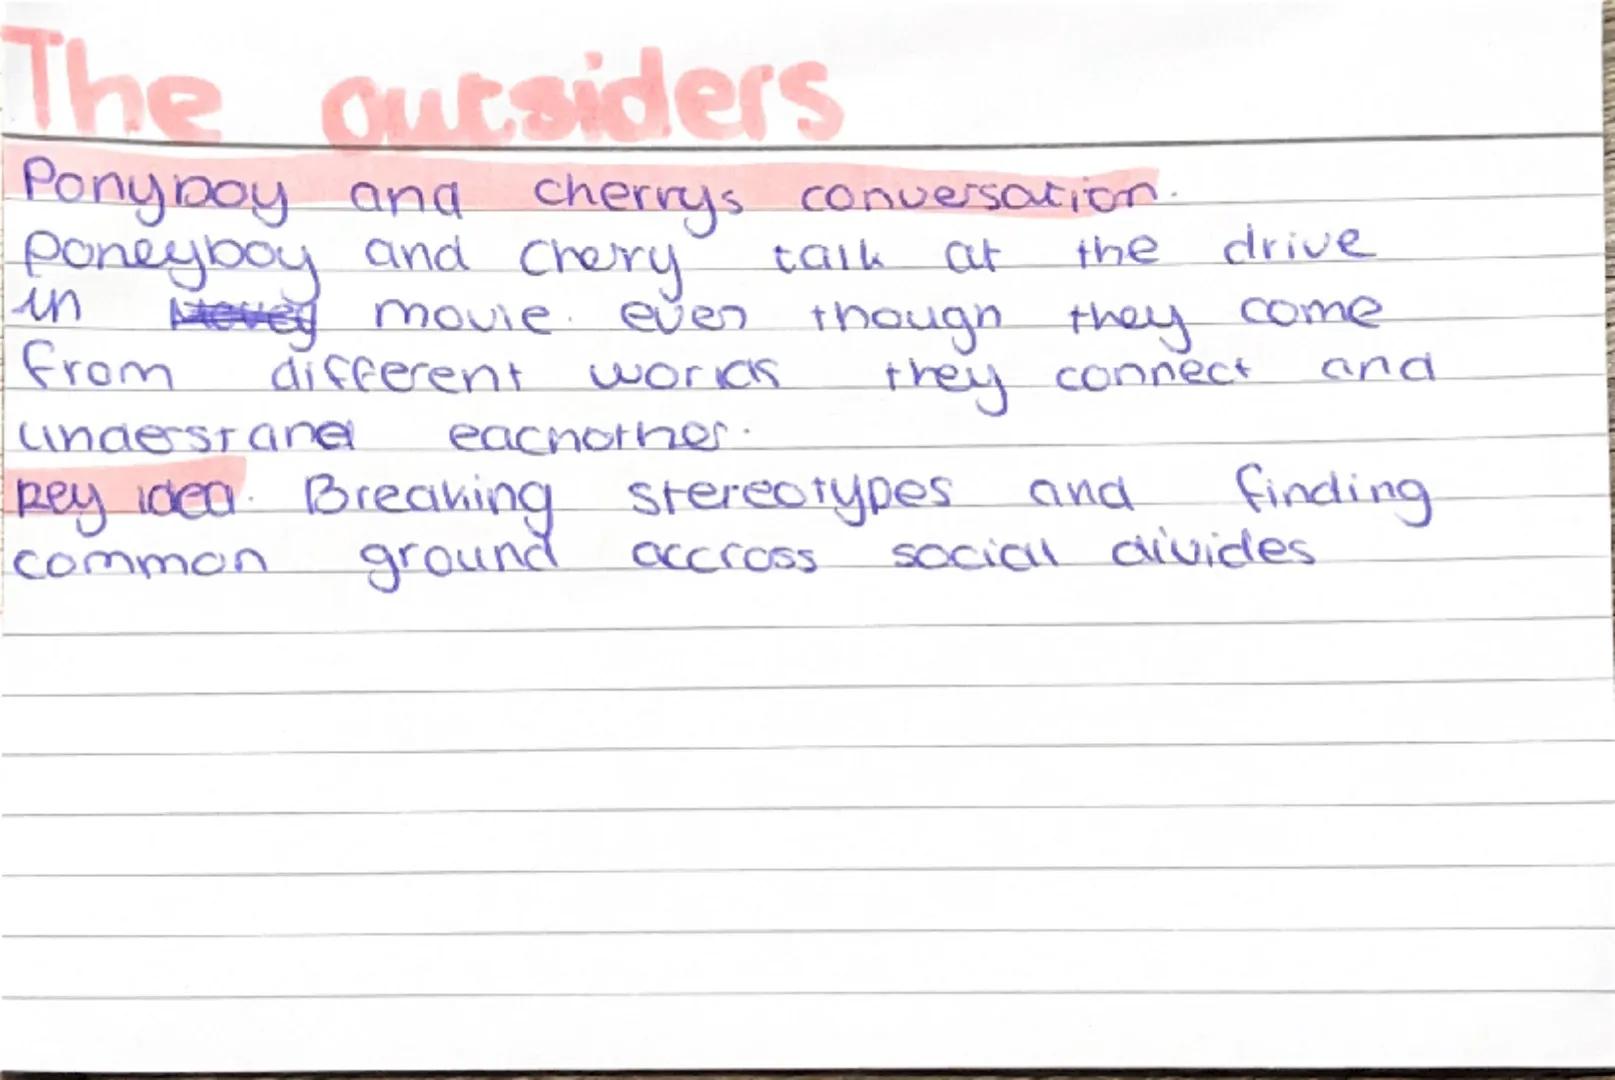 The outsiders
Ponyboy and cherrys conversation.
Poneyboy and Chery talk at the drive
in movie. even though they come
from different worlds they connect and
understand eachother.
key idea. Breaking stereotypes and finding
common ground accross social divides